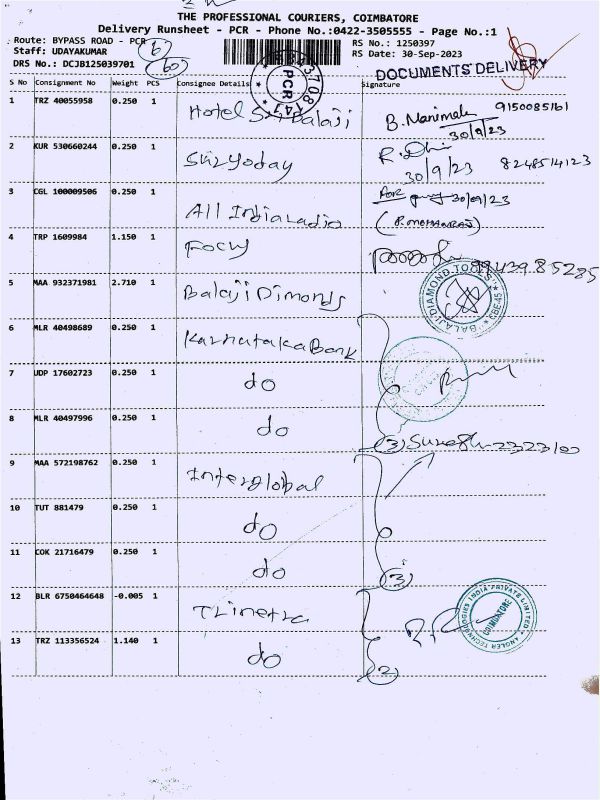 THE PROFESSIONAL COURIERS, COIMBATORE
Delivery Runsheet - PCR - Phone No.:0422-3505555 - Page No.:1
Route: BYPASS ROAD - PCR
RS No.: 1250397
Staff: UDAYAKUMAR
RS Date: 30-Sep-2023
DRS No.: DCJB125039701
60
PCR
DOCUMENTS DELIVERY
S No Consignment No Weight PCS Consignee Details Signature
1 TRZ 40055958 0.250 1 Hotel Sri Balaji B. Manimala 9150085161
30/9/23
2 KUR 530660244 0.250 1 Suryoday 8248514123
30/9/23
3 CGL 100009506 0.250 1 All India Radio For 30/09/23
(P. MOHANRAJ)
4 TRP 1609984 1.150 1 Focus 99439.85285
5 MAA 932371981 2.710 1 Balaji Dimonds
"BALAJI DIAMOND TOOLS" CBE-45
6 MLR 40498689 0.250 1 Karnataka Bank
7 UDP 17602723 0.250 1 do
8 MLR 40497996 0.250 1 do
(3) Suresh-2323100
9 MAA 572198762 0.250 1 Interglobal
10 TUT 881479 0.250 1 do
11 COK 21716479 0.250 1 do
(3)
12 BLR 6750464648 -0.005 1 Trinetra
ANGLER TECHNOLOGIES INDIA PRIVATE LIMITED
COIMBATORE
13 TRZ 113356524 1.140 1 do
(2)